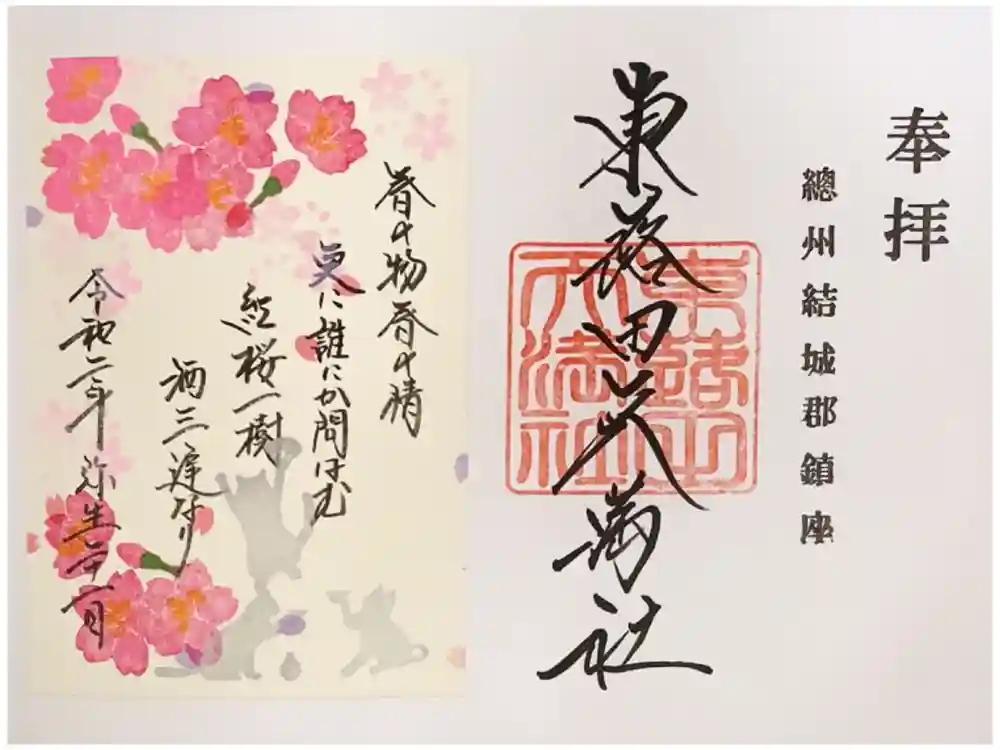 奉拝
總州結城郡鎮座
東蕗田天満社
東蕗田
天満社
春の物春の晴
更に誰にか問はむ
紅桜一樹
酒三遅なり
令和二年 弥生二十一日